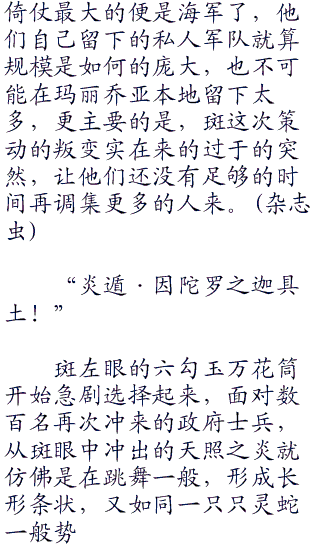 倚仗最大的便是海军了，他
们自己留下的私人军队就算
规模是如何的庞大，也不可
能在玛丽乔亚本地留下太
多，更主要的是，斑这次策
动的叛变实在来的过于的突
然，让他们还没有足够的时
间再调集更多的人来。(杂志
虫)
“炎遁·因陀罗之迦具
土！”
斑左眼的六勾玉万花筒
开始急剧选择起来，面对数
百名再次冲来的政府士兵，
从斑眼中冲出的天照之炎就
仿佛是在跳舞一般，形成长
形条状，又如同一只只灵蛇
一般势